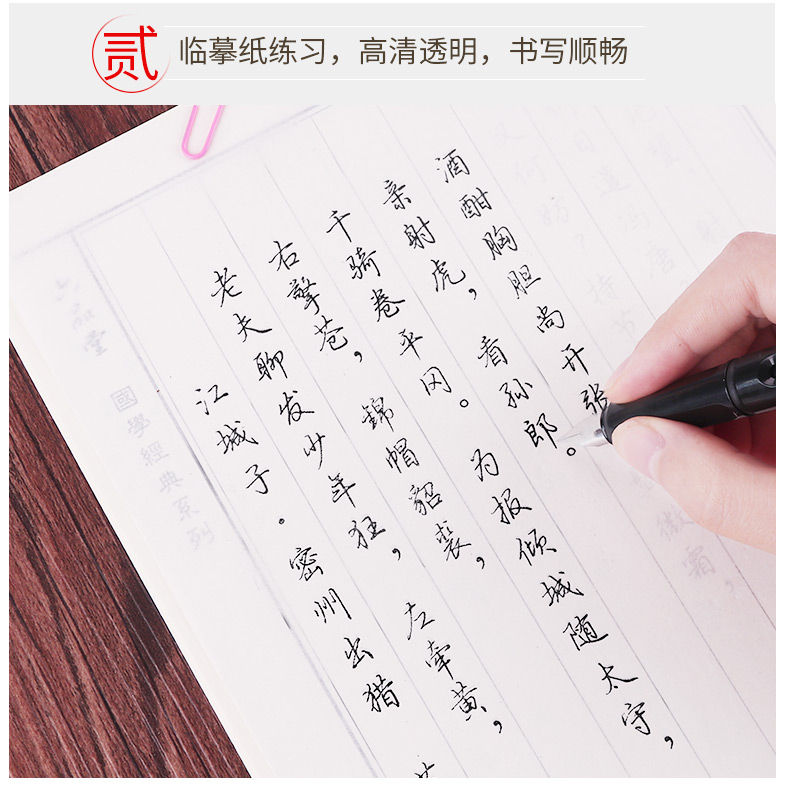 贰
临摹纸练习，高清透明，书写顺畅
六品堂
國學經典系列
江城子。密州出猎
老夫聊发少年狂，左牵黄，
右擎苍，锦帽貂裘，
千骑卷平冈。为报倾城随太守，
亲射虎，看孙郎。
酒酣胸胆尚开张。